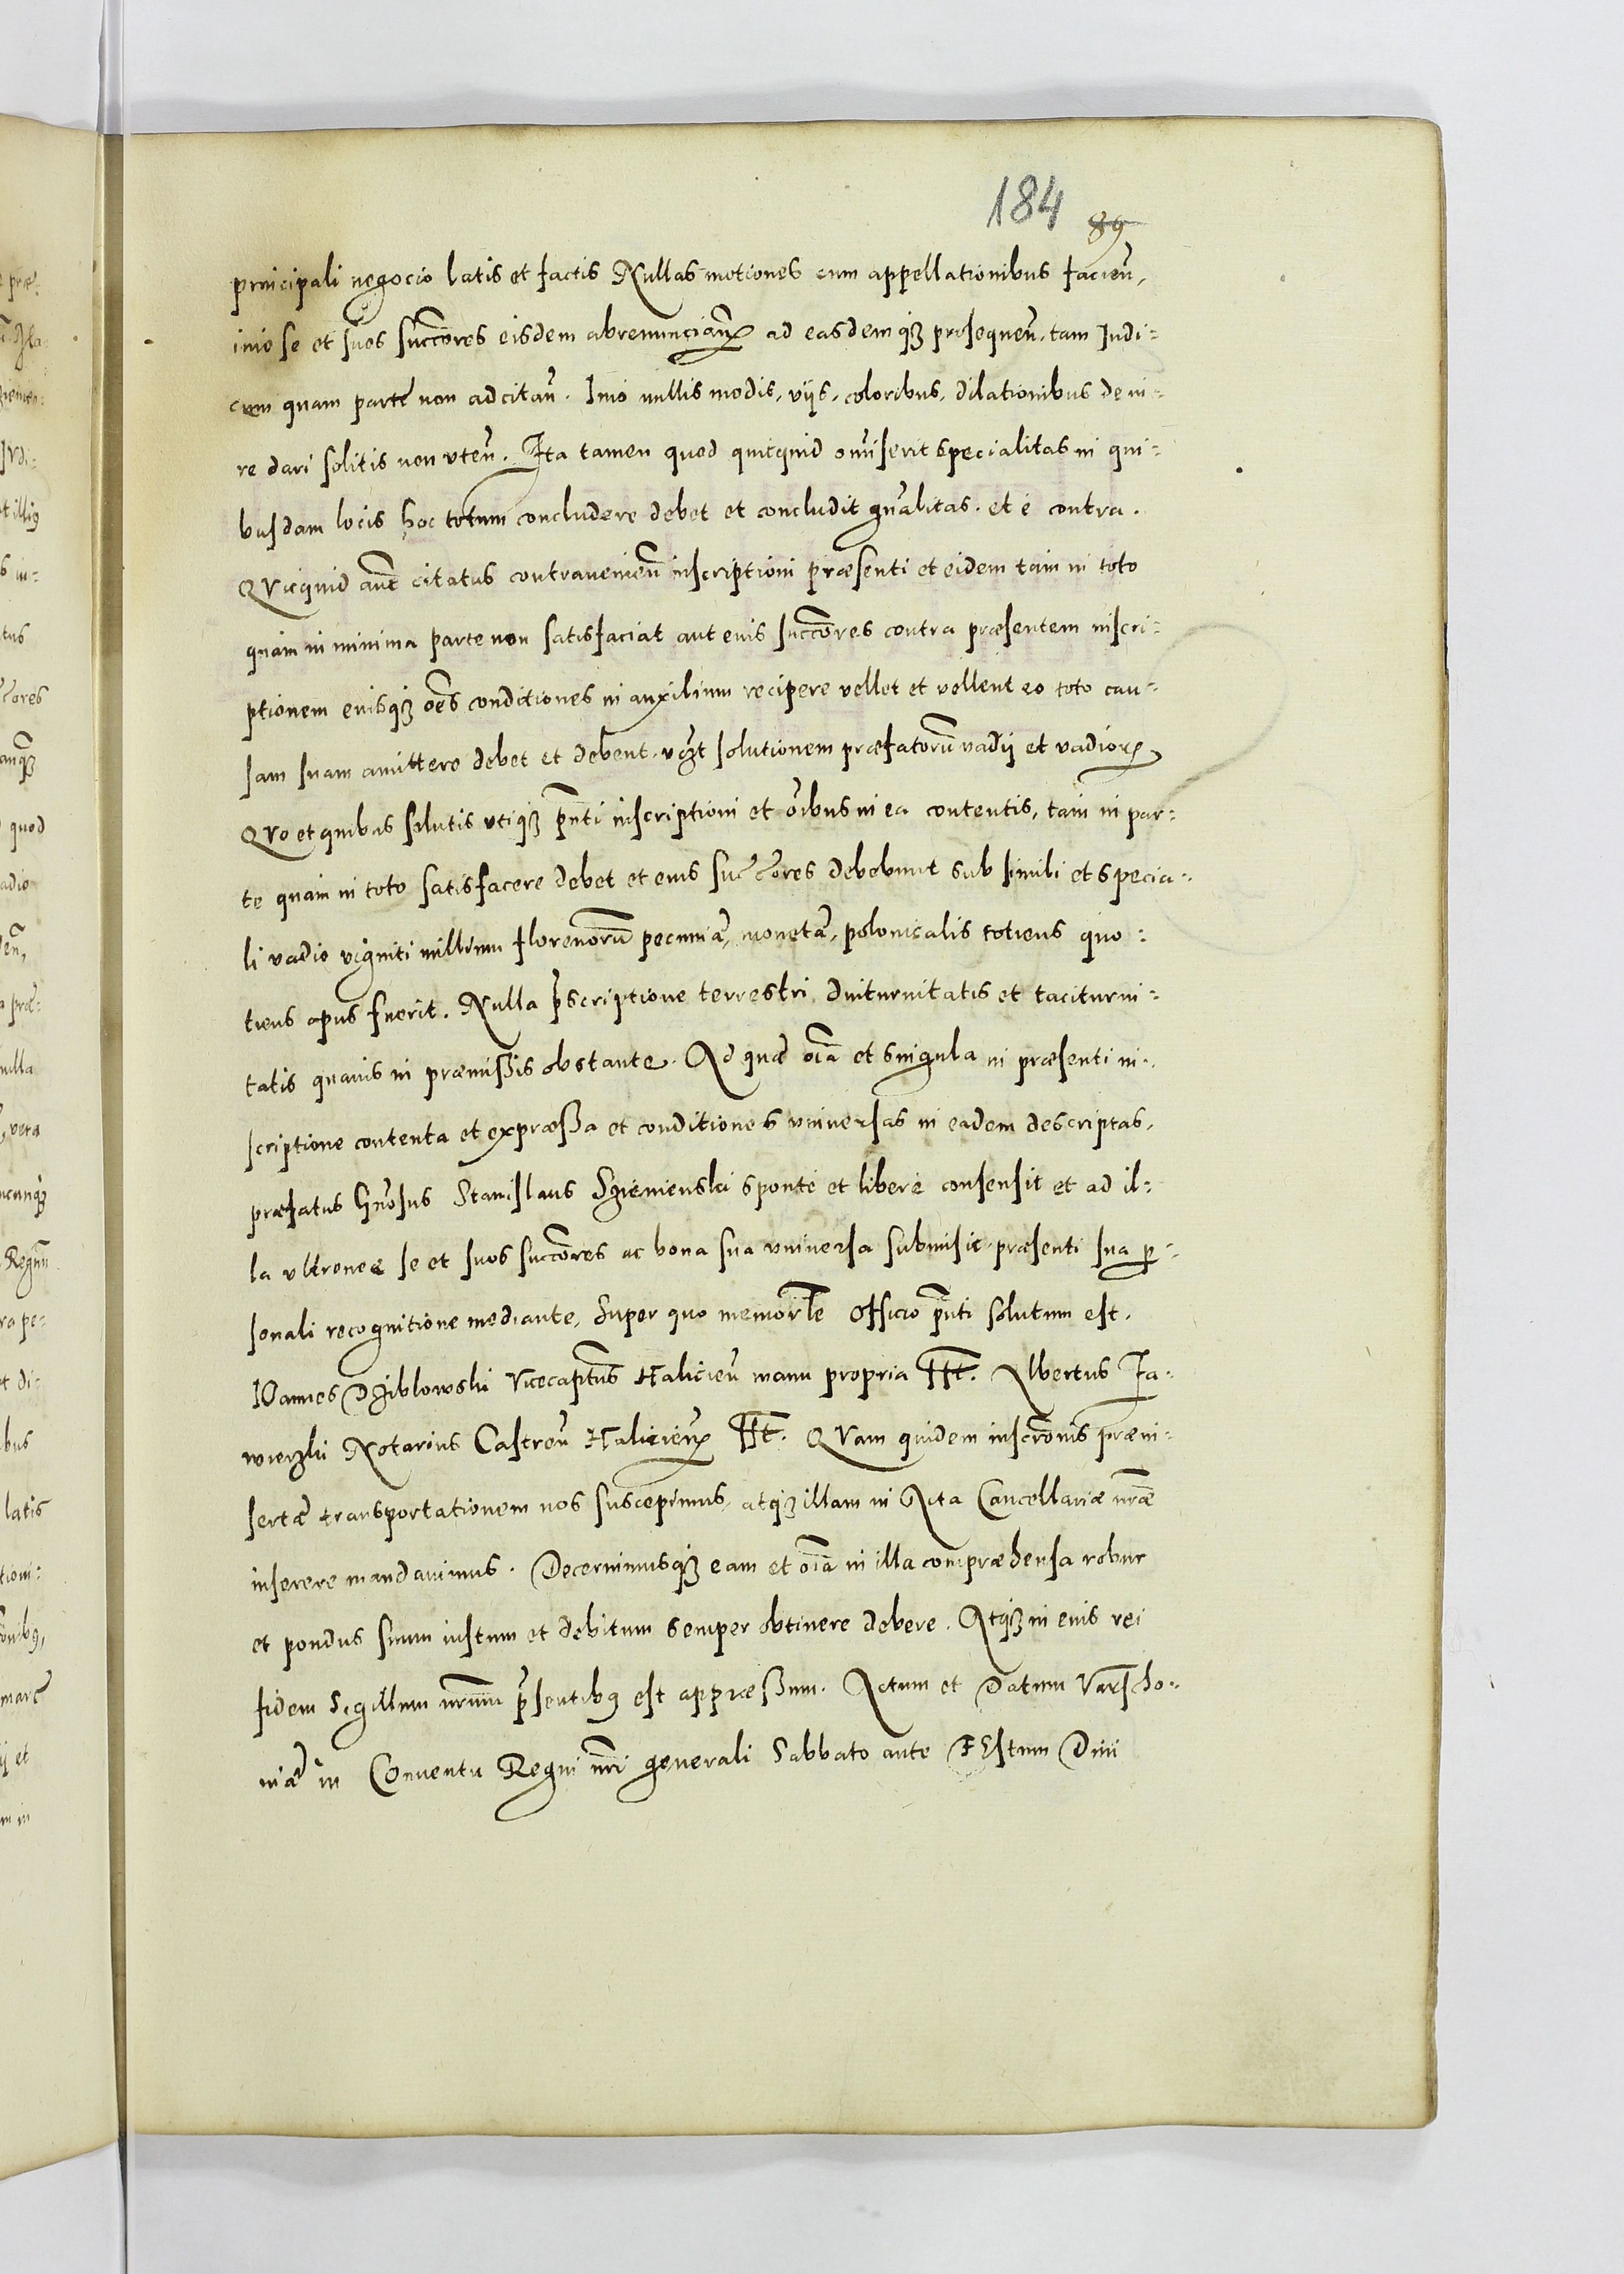 184 89
principali negocio latis et factis Nullas motiones cum appellationibus facieñ,
imo se et suos succores eisdem abrenunciañ ad easdemqꝫ prosequeñ. tam Judi=
cem quam parte non adcitañ. Imo nullis modis, viis, coloribus, dilationibus de iu=
re dari solitis non uteñ. Ita tamen quod quicquid omiserit specialitas in qui=
busdam locis hoc totum concludere debet et concludit gnãlitas. et è contra.
QVicquid aũt citatus contravenieñ inscriptioni præsenti et eidem tam in toto
quàm in minima parte non satisfaciat aut eius succores contra præsentem inscri=
ptionem eiusqꝫ oẽs conditiones in auxilium recipere vellet et vellent eo toto cau=
sam suam amittere debet et debent. solutionem præfatorũ vadij et vadioꝝ
QVo et quibus solutis utiqꝫ pñti inscriptioni et oĩbus in ea contentis, tàm in par=
te quàm in toto satisfacere debet et eius succores debebunt sub simili et specia=
li vadio viginti millium florenorũ pecuniæ, monetæ, polonicalis totiens quo=
tiens opus fuerit. Nulla p̃scriptione terrestri diuturnitatis et taciturni=
tatis quavis in præmissis obstante. Ad quæ oĩa et singula in præsenti in=
scriptione contenta et expræssa et conditiones universas in eadem descriptas,
præfatus Gñosus Stanislaus Sziemienski sponte et liberè consensit et ad il=
la ultronee se et suos succores ac bona sua universa submisit præsenti sua ꝑ=
sonali recognitione mediante, Super quo memorĩle Officio pñti solutum est.
IOannes Dziblowski Vicecaptñs Halicieñ manu propria sst. Albertus Ja=
wierzki Notarius Castreñ Halicieñ sst. QVam quidem inscrõnis præin=
sertæ transportationem nos suscepimus, atqꝫ illam in Acta Cancellariæ nrãe
inserere mandavimus. Decernimusqꝫ eam et oĩa in illa compræhensa robur
et pondus suum iustum et debitum semper obtinere debere. Atqꝫ in eius rei
fidem Sigillum nrũm p̃sentibꝰ est appræssum. Actum et Datum Varscho=
niæ in Conventu Regni nrĩ generali Sabbato ante FEstum Divi